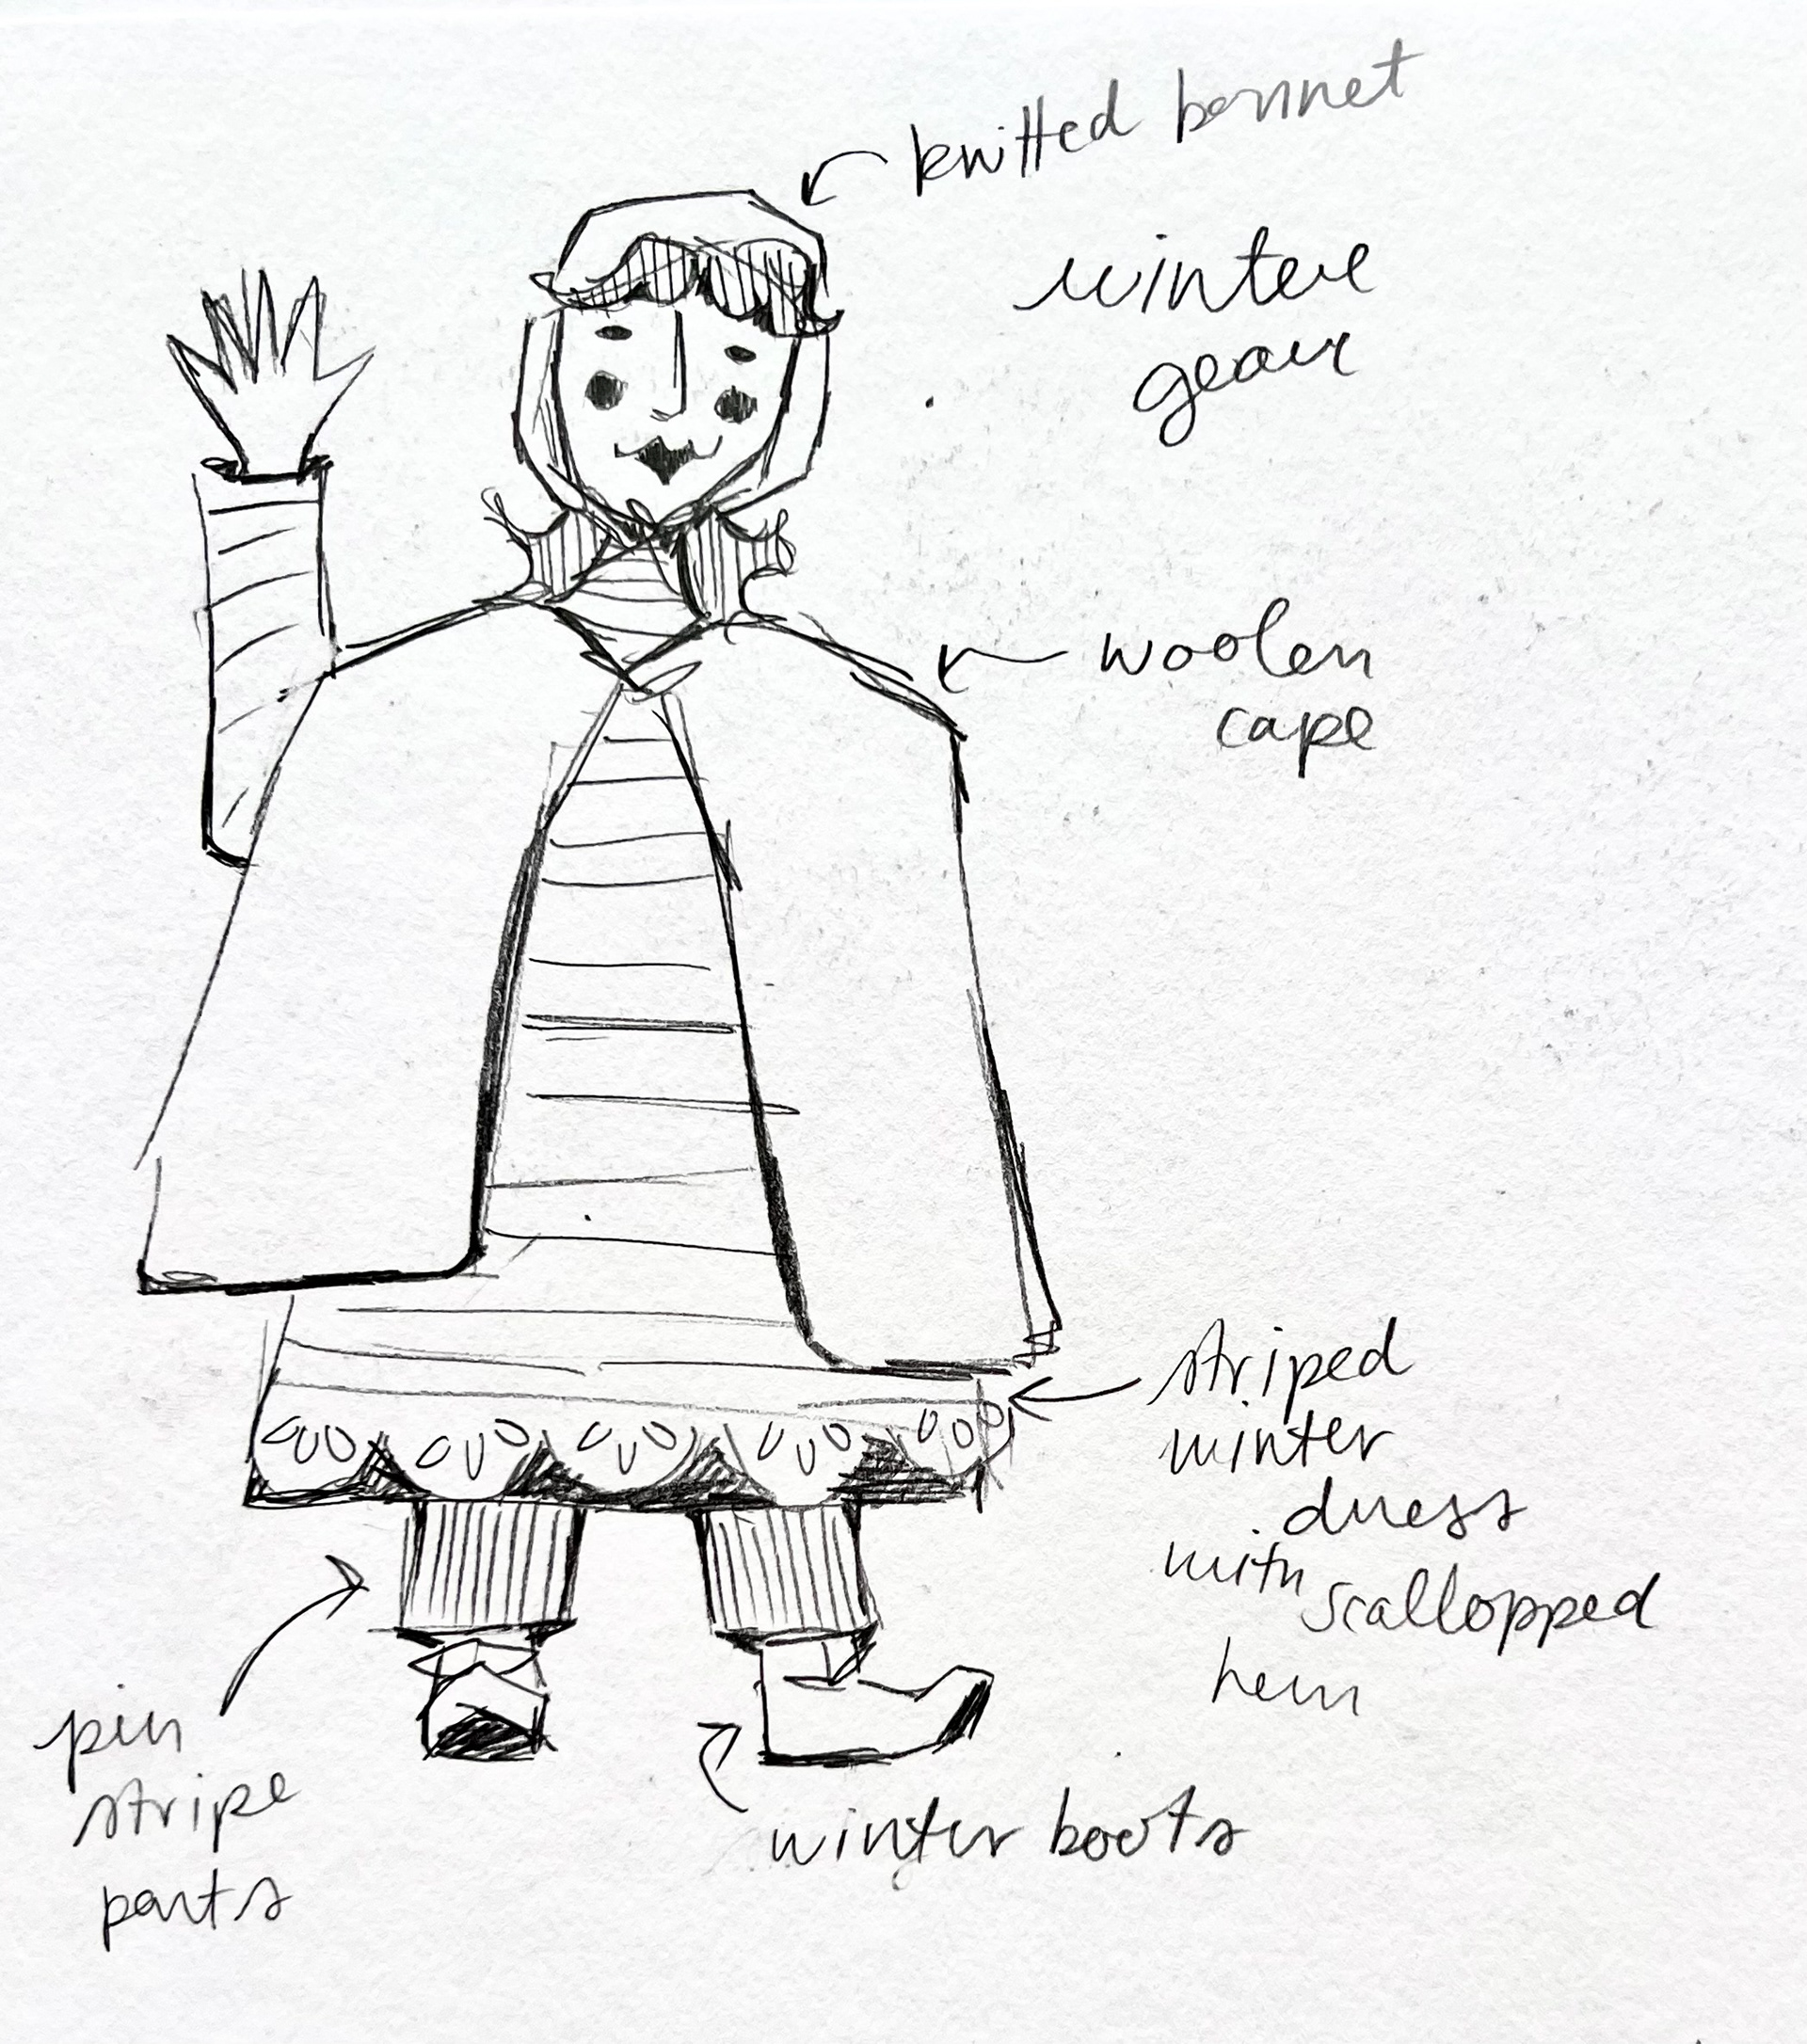 knitted bonnet
winter
gear
woolen
cape
striped
winter
dress
with scallopped
hem
pin
stripe
pants
winter boots